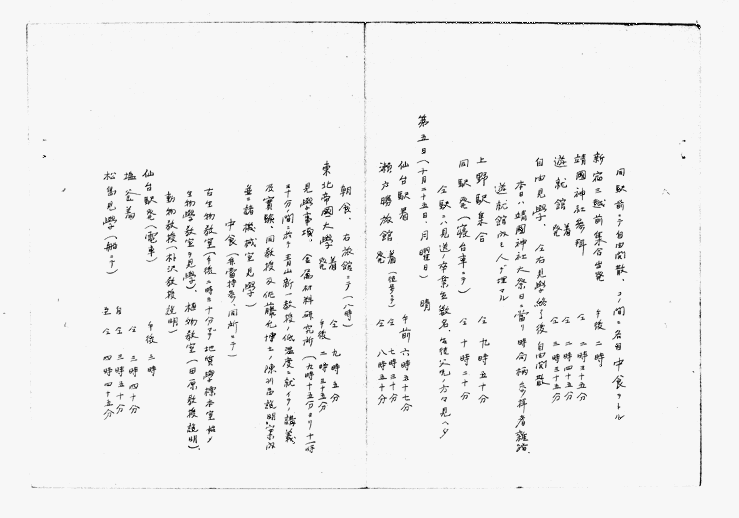 同駅前ニテ自由開散、コノ間ニ各自中食ヲトル
新宿三越前集合出発 午後二時
靖國神社参拝 仝 二時三十五分
遊就館 着 仝 二時四十五分
発 仝 三時三十五分
自由見学、仝右見学終了後自由開散
本日ハ靖國神社大祭日ニ當リ時局柄參拝者雑沓、
遊就館内モ人デ埋マル
上野駅集合 仝 九時五十分
同駅発(寝台車ニテ) 仝 十時二十分
仝駅ニハ見送ノ卒業生数名、生徒父兄ノ方々見ヘタ
第五日(十月二十五日、月曜日) 晴
仙台駅着 午前 六時五十七分
瀬戸勝旅館 着(徒歩ニテ) 仝 七時三十分
発 仝 八時五十分
朝食、右旅館ニテ(八時)
東北帝國大學 着 仝 九時五分
発 午後 二時三十五分
見學事項、金属材料研究所(九時十五分ヨリ十一時
三十分ノ間ニ於テ青山新一教授ノ低温度ニ就イテノ講義
及實験、同教授及佐藤允博士ノ陳列品説明、案内
並ニ諸機械室見学)
中食(弁當持参、同所ニテ)
右生物教室(午後二時三十分マデ地質學標本室、
生物學教室ヲ見学) 植物教室(田原教授説明)、
動物教授(朴沢教授説明)
仙台駅発(電車) 午後 三時
塩釜着 仝 三時四十分
松島見學(船ニテ) 自仝 三時五十分
至仝 四時四十五分